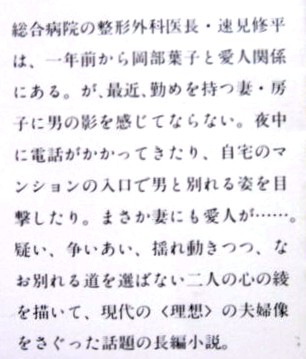 総合病院の整形外科医長・速見修平
は、一年前から岡部葉子と愛人関係
にある。が、最近、勤めを持つ妻・房
子に男の影を感じてならない。夜中
に電話がかかってきたり、自宅のマ
ンションの入口で男と別れる姿を目
撃したり。まさか妻にも愛人が……。
疑い、争いあい、揺れ動きつつ、な
お別れる道を選ばない二人の心の綾
を描いて、現代の〈理想〉の夫婦像
をさぐった話題の長編小説。